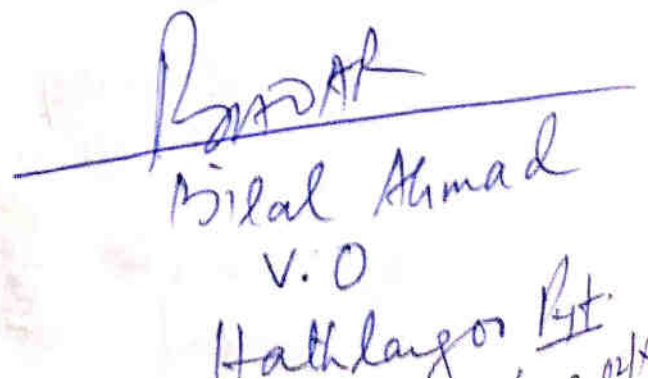 Bilal Ahmad
V.O
Hathlangoo Pyt.